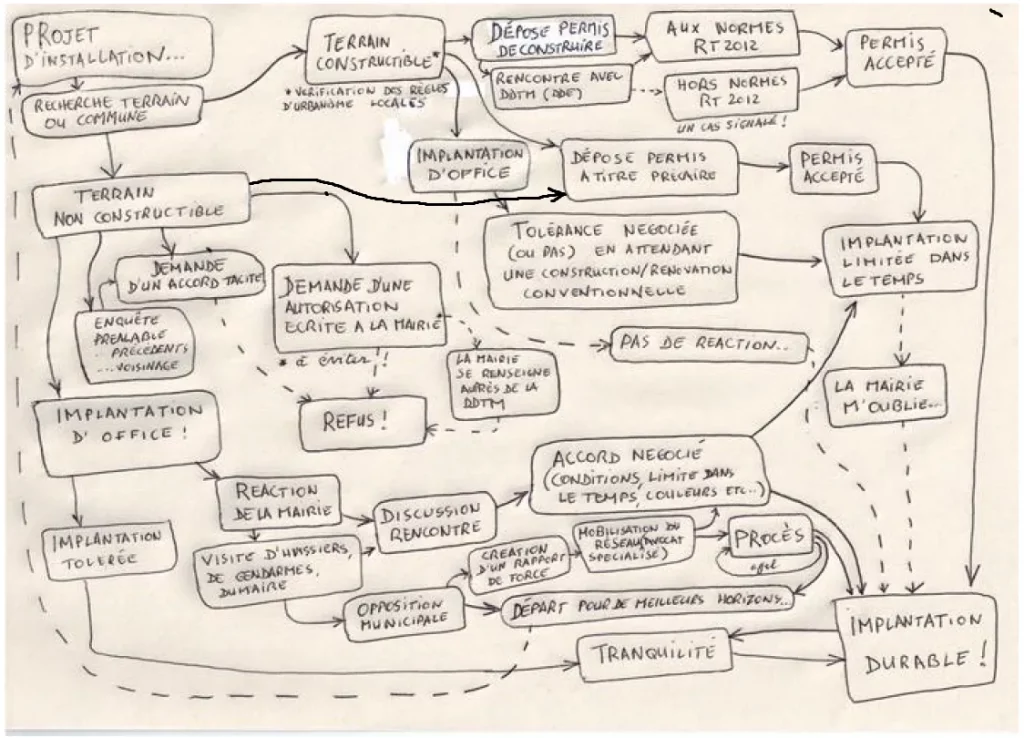 PROJET
D'INSTALLATION...
RECHERCHE TERRAIN
OU COMMUNE
TERRAIN
CONSTRUCTIBLE*
* VERIFICATION DES RÈGLES
D'URBANISME LOCALES
DÉPOSE PERMIS
DE CONSTRUIRE
RENCONTRE AVEC
DDTM (DDE)
AUX NORMES
RT 2012
HORS NORMES
RT 2012
UN CAS SIGNALÉ !
PERMIS
ACCEPTÉ
IMPLANTATION
D'OFFICE
DÉPOSE PERMIS
A TITRE PRÉCAIRE
PERMIS
ACCEPTÉ
TERRAIN
NON CONSTRUCTIBLE
TOLÉRANCE NEGOCIÉE
(OU PAS) EN ATTENDANT
UNE CONSTRUCTION/RENOVATION
CONVENTIONNELLE
IMPLANTATION
LIMITÉE DANS
LE TEMPS
DEMANDE
D'UN ACCORD TACITE
DEMANDE D'UNE
AUTORISATION
ECRITE A LA MAIRIE*
* à éviter !!
ENQUÊTE
PREALABLE
... PRÉCEDENTS
... VOISINAGE
PAS DE REACTION...
LA MAIRIE
SE RENSEIGNE
AUPRÈS DE LA
DDTM
LA MAIRIE
M'OUBLIE...
IMPLANTATION
D'OFFICE !
REFUS !
ACCORD NEGOCIÉ
(CONDITIONS, LIMITE DANS
LE TEMPS, COULEURS ETC...)
REACTION
DE LA MAIRIE
DISCUSSION
RENCONTRE
IMPLANTATION
TOLERÉE
VISITE D'HUISSIERS,
DE GENDARMES,
DU MAIRE
CREATION
D'UN RAPPORT
DE FORCE
MOBILISATION DU
RÉSEAU (AVOCAT
SPECIALISÉ)
PROCÈS
appel
OPPOSITION
MUNICIPALE
DÉPART POUR DE MEILLEURS HORIZONS...
TRANQUILITÉ
IMPLANTATION
DURABLE !